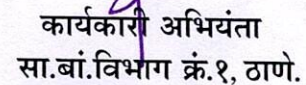 कार्यकारी अभियंता
सा.बां.विभाग क्रं.१, ठाणे.